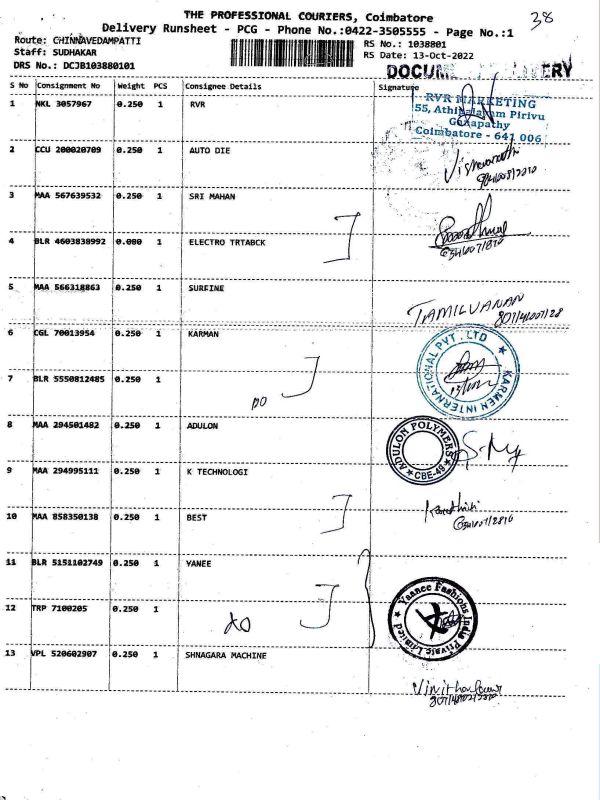 THE PROFESSIONAL COURIERS, Coimbatore
38
Delivery Runsheet - PCG - Phone No.:0422-3505555 - Page No.:1
Route: CHINNAVEDAMPATTI
RS No.: 1038801
Staff: SUDHAKAR
RS Date: 13-Oct-2022
DRS No.: DCJB103880101
S No Consignment No Weight PCS Consignee Details Signature
1 NKL 3057967 0.250 1 RVR
RVR MARKETING
55, Athipalayam Pirivu
Ganapathy
Coimbatore - 641 006
2 CCU 200020709 0.250 1 AUTO DIE
3 MAA 567639532 0.250 1 SRI MAHAN
4 BLR 4603838992 0.080 1 ELECTRO TRTABCK
5 MAA 566318863 0.250 1 SURFINE
TAMILVANAN
6 CGL 70013954 0.250 1 KARMAN
KARMEN INTERNATIONAL PVT. LTD
7 BLR 5550812485 0.250 1
DO
8 MAA 294501482 0.250 1 ADULON
ADULON POLYMERS
CBE-49
9 MAA 294995111 0.250 1 K TECHNOLOGI
10 MAA 858350138 0.250 1 BEST
11 BLR 5151102749 0.250 1 YANEE
Yaanee Fashions India Private Limited
12 TRP 7100205 0.250 1
DO
13 VPL 520602907 0.250 1 SHNAGARA MACHINE